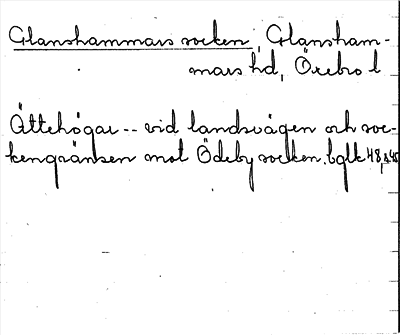 Glanshammars socken, Glansham-
mars hd, Örebro l
Ättehögar -- vid landsvägen och soc-
kengränsen mot Ödeby socken. bglk 48,